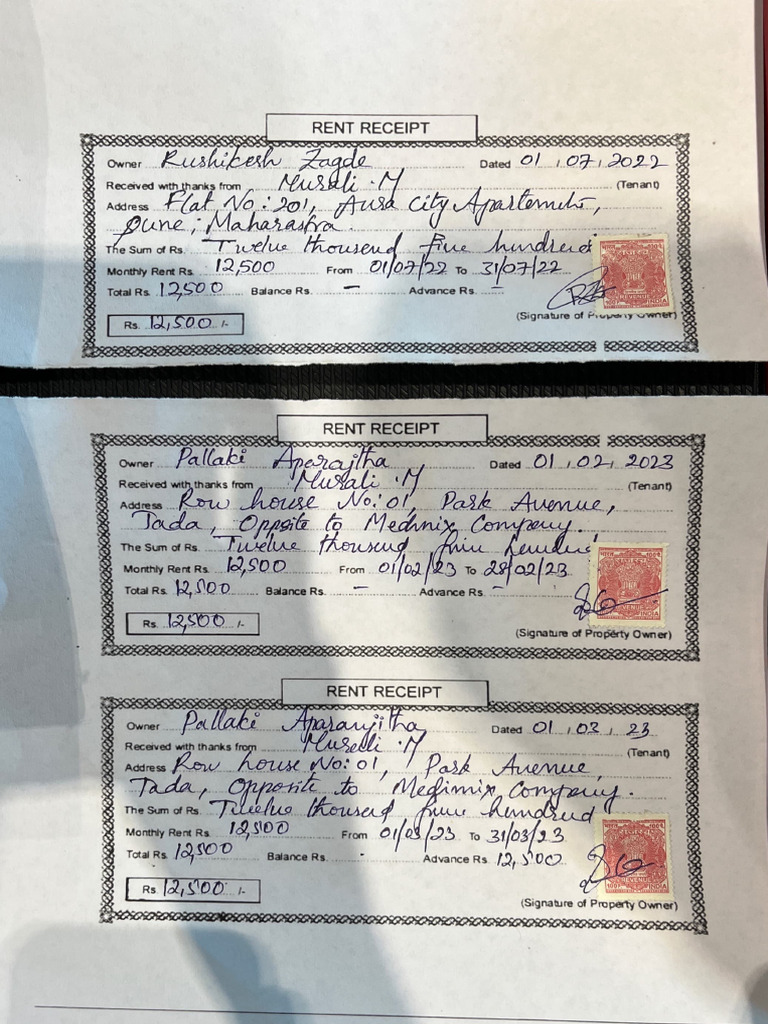 RENT RECEIPT
Owner Rushikesh Zagde Dated 01 , 07 , 2022
Received with thanks from Murali . M (Tenant)
Address Flat No : 201, Aura City Apartments,
Pune, Maharastra.
The Sum of Rs. Twelve thousand five hundred
Monthly Rent Rs. 12,500 From 01/07/22 To 31/07/22
Total Rs. 12,500 Balance Rs. – Advance Rs. –
(Signature of Property Owner)
Rs. 12,500 /-
REVENUE INDIA
RENT RECEIPT
Owner Pallaki Aparajtha Dated 01 , 02 , 2023
Received with thanks from Murali . M (Tenant)
Address Row house No: 01, Park Avenue,
Tada, Oppsite to Medimix Company.
The Sum of Rs. Twelve thousand five hundred
Monthly Rent Rs. 12,500 From 01/02/23 To 28/02/23
Total Rs. 12,500 Balance Rs. – Advance Rs. –
Rs. 12,500 /-
(Signature of Property Owner)
भारत 100पै
REVENUE INDIA
RENT RECEIPT
Owner Pallaki Aparanjitha Dated 01 , 03 , 23
Received with thanks from Murali . M (Tenant)
Address Row house No: 01, Park Avenue,
Tada, Opposite to Medimix Company.
The Sum of Rs. Twelve thousand five hundred
Monthly Rent Rs. 12,500 From 01/03/23 To 31/03/23
Total Rs. 12,500 Balance Rs. - Advance Rs. 12,500
Rs. 12,500 /-
(Signature of Property Owner)
REVENUE INDIA